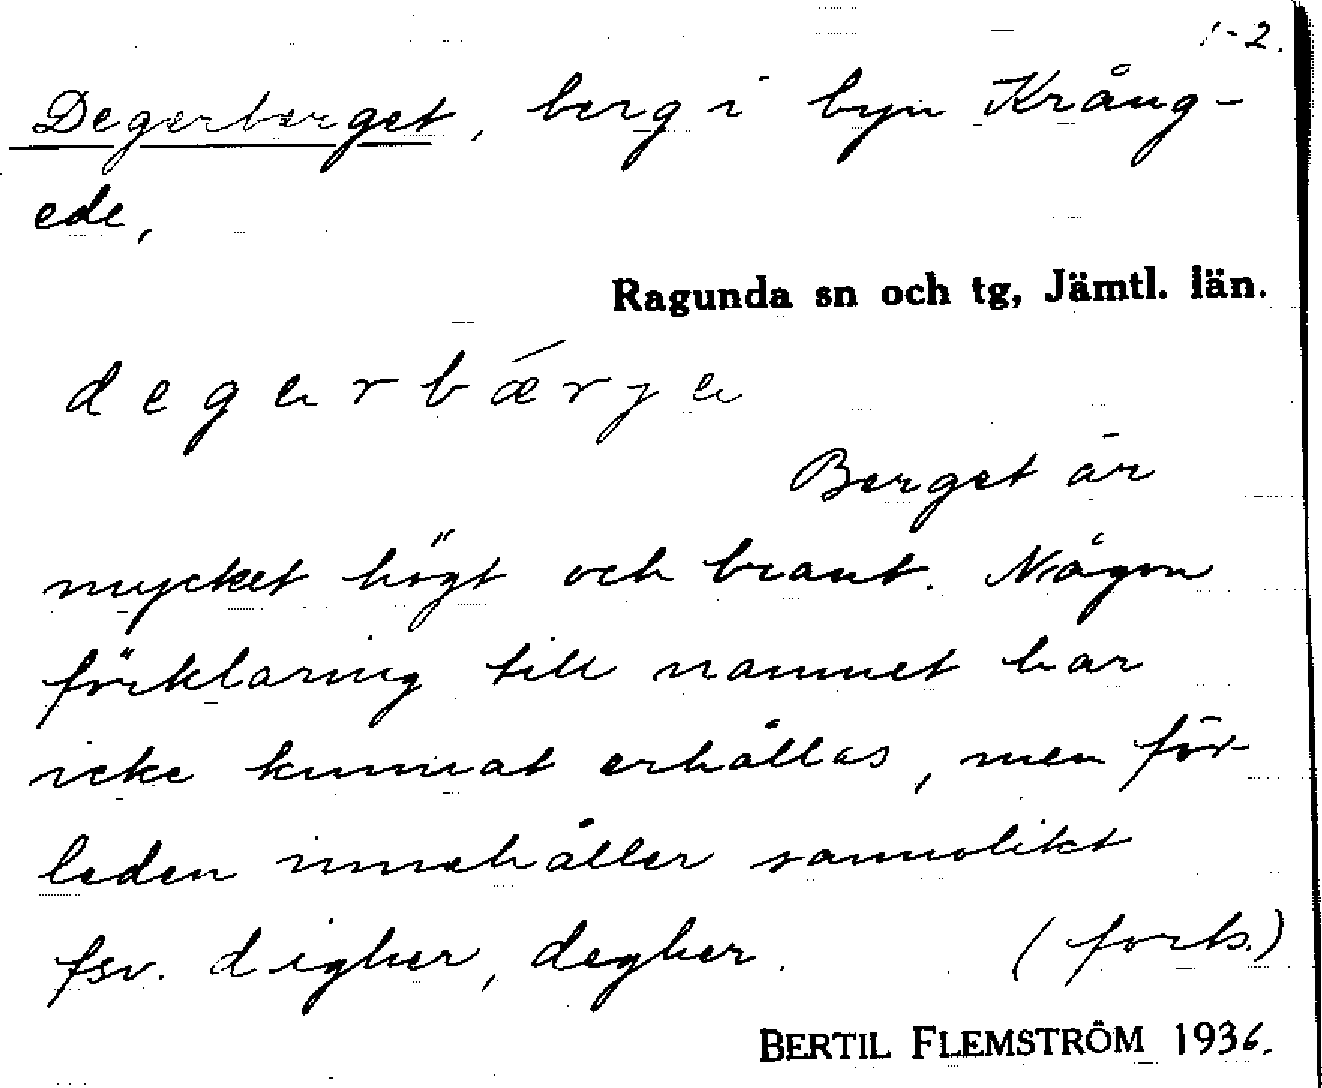 1-2.
Degerberget, berg i byn Krång-
ede,
Ragunda sn och tg, Jämtl. län.
degerbǽrye
Berget är
mycket högt och brant. Någon
förklaring till namnet har
icke kunnat erhållas, men för-
leden innehåller sannolikt
fsv. digher, degher.
(forts.)
BERTIL FLEMSTRÖM 1936.